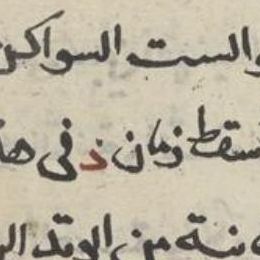 والست السواكن
سقط زمان ذ فى هذ
ينة من الوقد ال